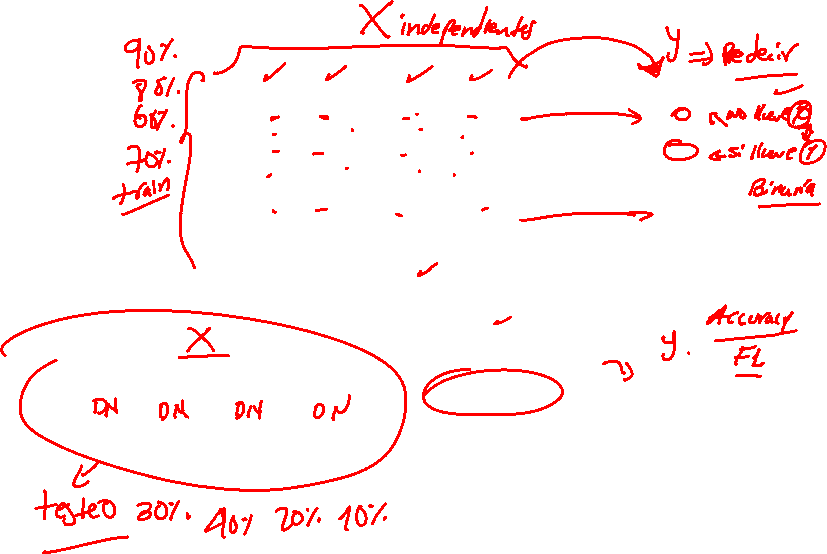 X independientes
90%.
80%.
60%.
70%.
train
y => Predecir
no llueve 0
si llueve 1
Binaria
X
DN DN DN DN
y. Accuracy
F1
testeo 30%. 40% 20%. 10%.